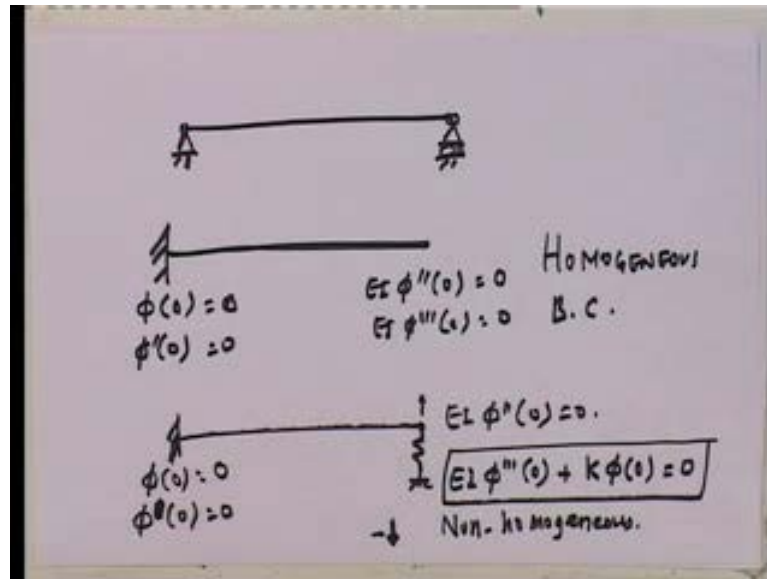 ϕ(0) = 0
ϕ'(0) = 0
EI ϕ''(0) = 0
EI ϕ'''(0) = 0
HOMOGENEOUS
B.C.
ϕ(0) = 0
ϕ'(0) = 0
EI ϕ''(0) = 0.
EI ϕ'''(0) + Kϕ(0) = 0
Non-homogeneous.